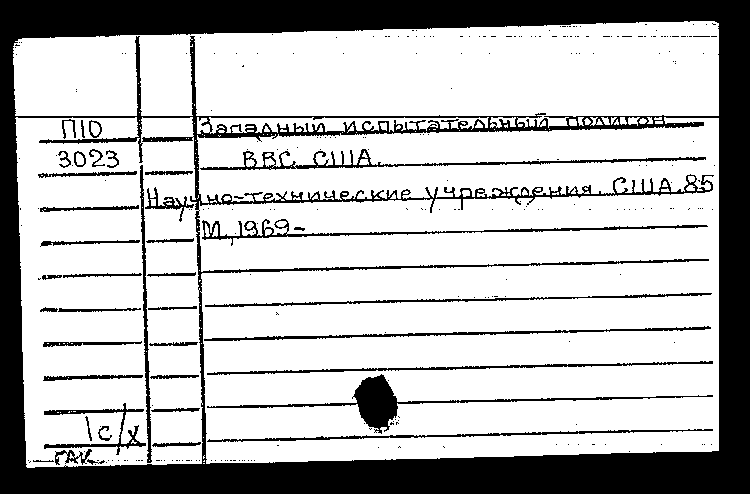 П10 Западный испытательный полигон
3023 ВВС США.
Научно-технические учреждения. США.85
М.,1969-
1с/х
ГАК